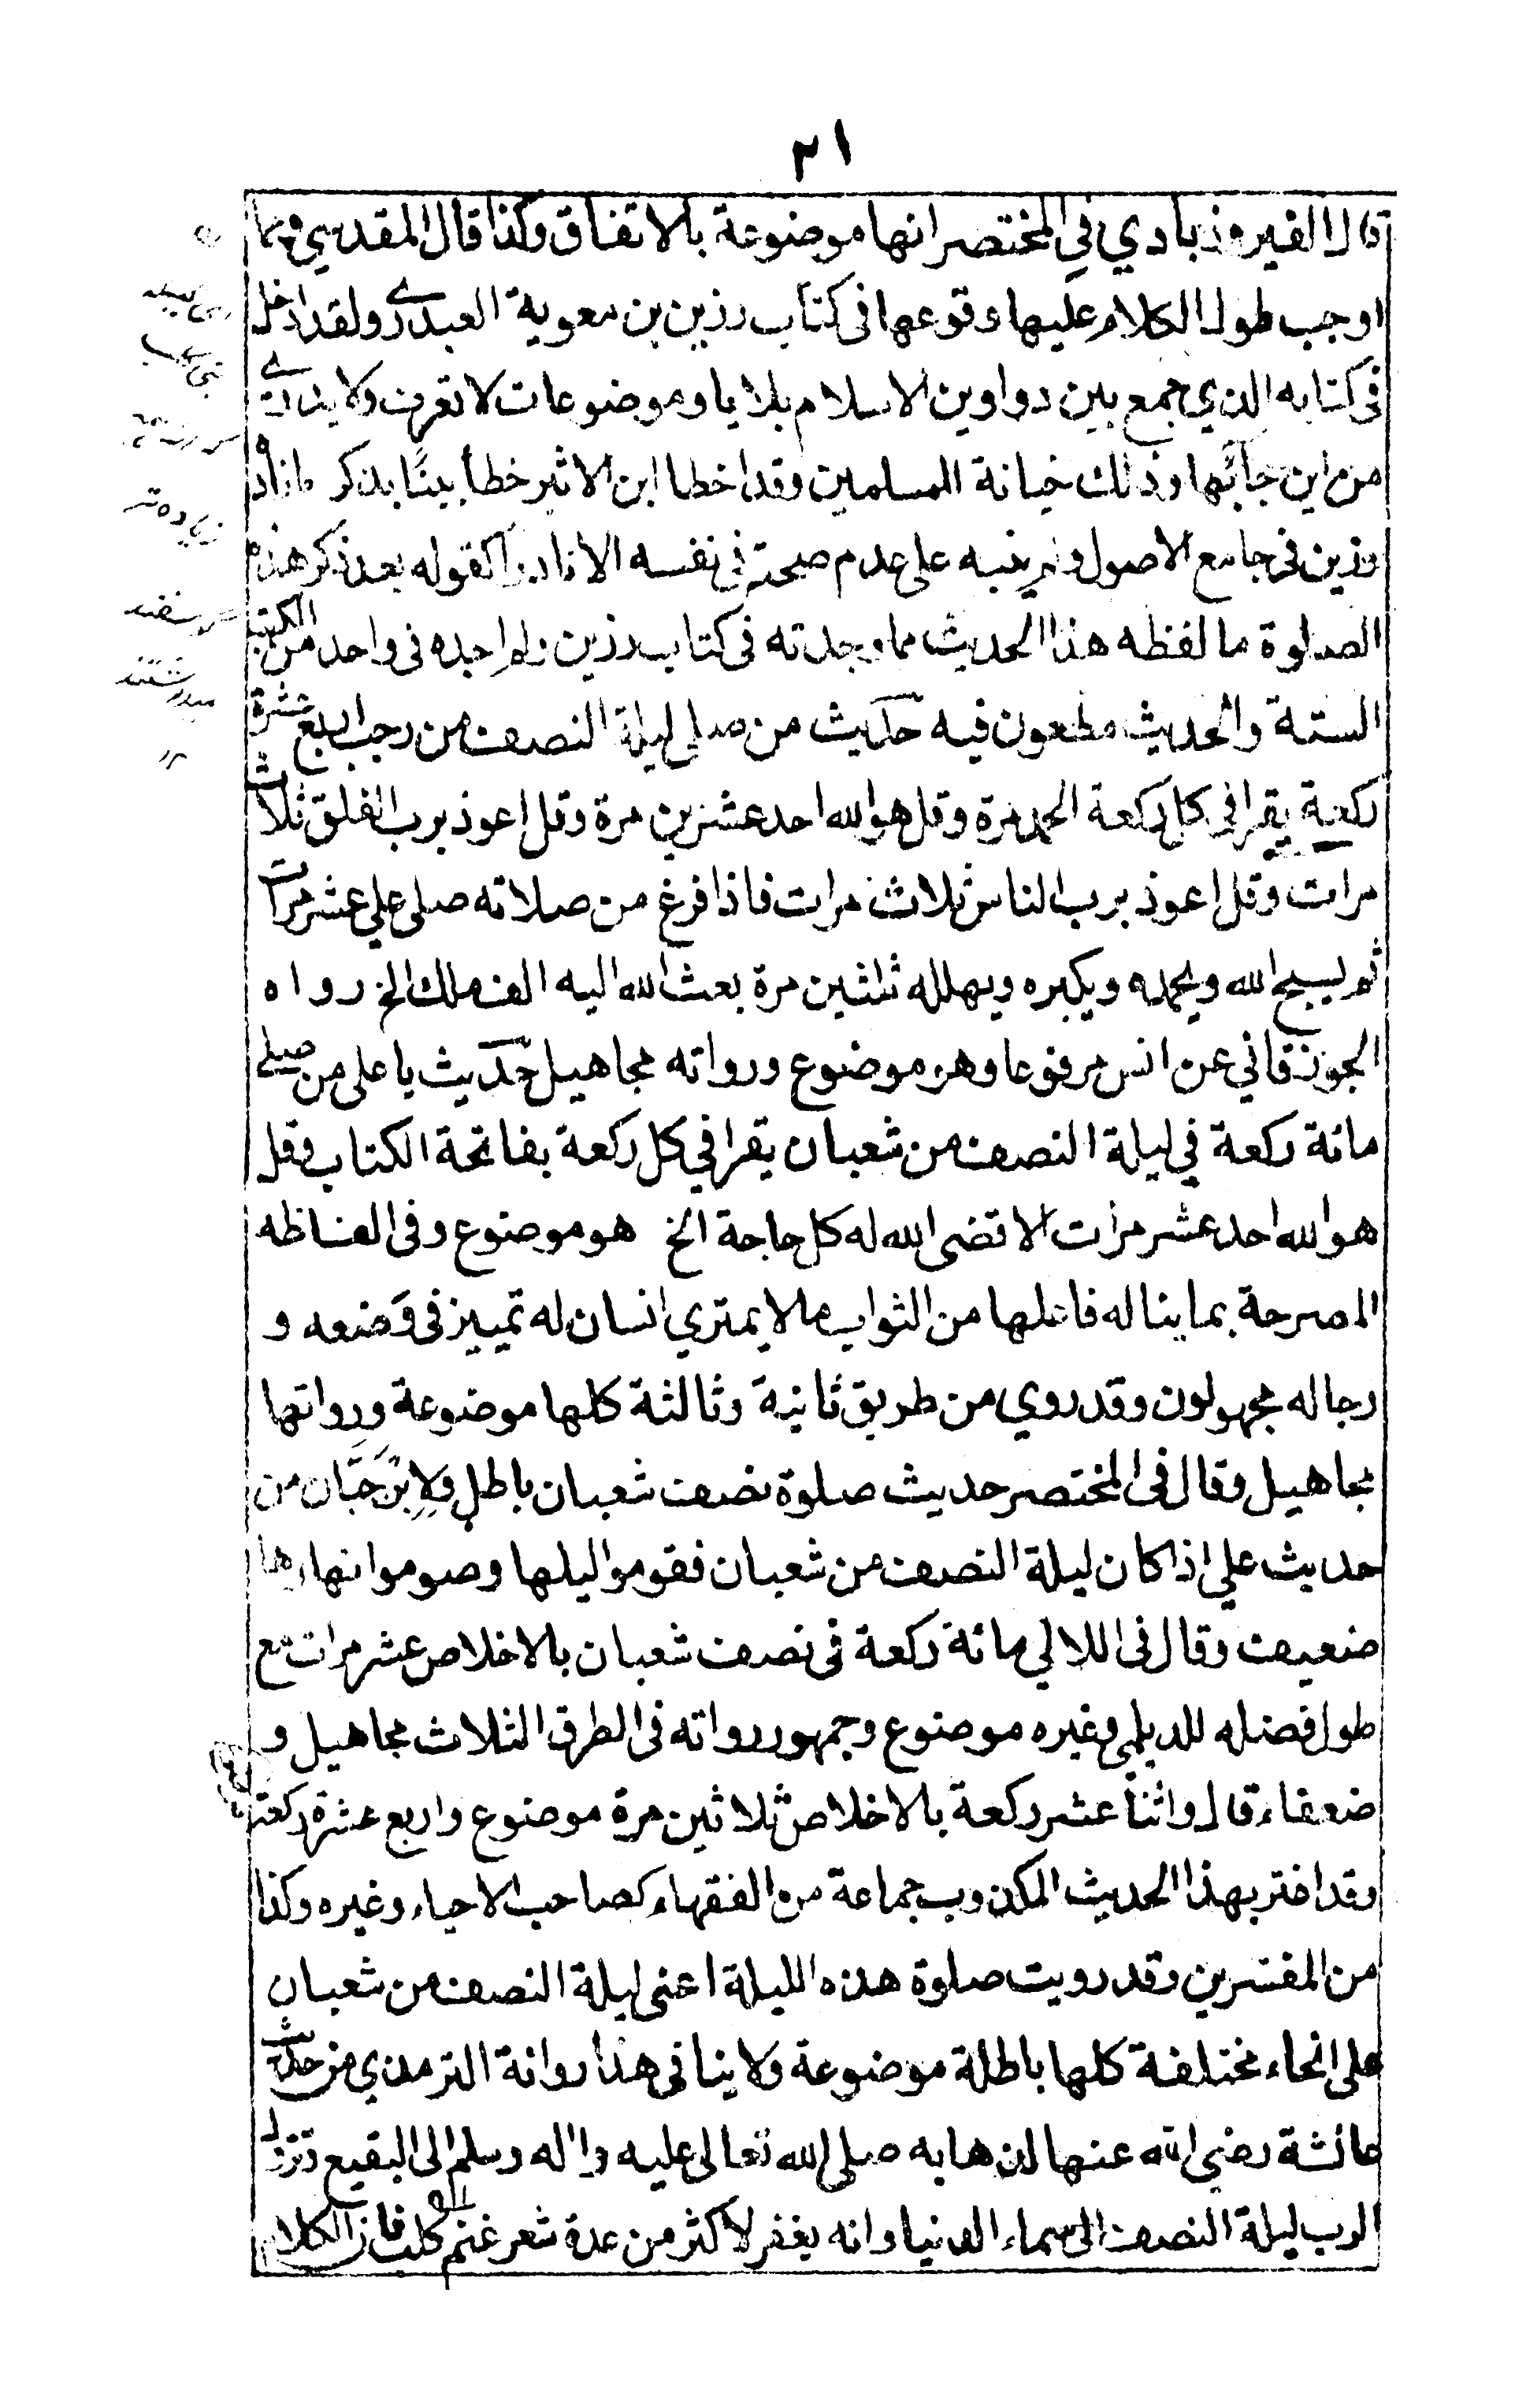 ٢١
قال الفيروزبادي في المختصر انها موضوعة بالاتفاق وكذا قال المقدسي ومما
اوجب طول الكلام عليها وقوعها فى كتاب رزين بن معوية العبدرى ولقد ادخل
فى كتابه الذي جمع بين دواوين الاسلام بلايا وموضوعات لا تعرف ولا يدرى
من اين جاء بها وذلك خيانة المسلمين وقد اخطا ابن الاثير خطأ بينًا بذكر مازاده
رزين فى جامع الاصول ولم ينبه على عدم صحته فى نفسه الا نادرا كقوله بعد ذكر هذه
الصلوة ما لفظه هذا الحديث مما وجدته فى كتاب رزين ولم اجده فى واحد من الكتب
الستة والحديث مطعون فيه حديث من صلى ليلة النصف من رجب اربع عشرة
ركعة يقرا في كل ركعة الحمد مرة وقل هو الله احد عشرين مرة وقل اعوذ برب الفلق ثلاث
مرات وقل اعوذ برب الناس ثلاث مرات فاذا فرغ من صلاته صلى علي عشر مرات
ثم يسبح الله ويحمده ويكبره ويهلله ثلثين مرة بعث الله اليه الف ملك الخ رواه
الجوزقاني عن انس مرفوعا وهو موضوع ورواته مجاهيل حديث يا على من صلى
مائة ركعة في ليلة النصف من شعبان يقرا في كل ركعة بفاتحة الكتاب وقل
هو الله احد عشر مرات الا قضى الله له كل حاجة الخ هو موضوع وفى الفاظه
المصرحة بما يناله فاعلها من الثواب ما لا يمتري انسان له تمييز فى وَضعه و
رجاله مجهولون وقد روي من طريق ثانية وثالثة كلها موضوعة ورواتها
مجاهيل وقال فى المختصر حديث صلوة نصف شعبان باطل ولابْن حَبَّان من
حديث علي اذا كان ليلة النصف من شعبان فقوموا ليلها وصوموا نهارها
ضعيف وقال فى اللالي مائة ركعة فى نصف شعبان بالاخلاص عشر مرات مع
طول فضله للديلمى وغيره موضوع وجمهور رواته فى الطرق الثلاث مجاهيل و
ضعفاء قال واثنا عشر ركعة بالاخلاص ثلاثين مرة موضوع واربع عشرة ركعة
وقد اغتر بهذا الحديث المكذوب جماعة من الفقهاء كصاحب الاحياء وغيره وكذا
من المفسرين وقد رويت صلوة هذه الليلة اعنى ليلة النصف من شعبان
على انحاء مختلفة كلها باطلة موضوعة ولا ينافى هذا رواية الترمذي من حديث
عائشة رضي الله عنها لذهابه صلى الله تعالى عليه واله وسلم الى البقيع ونزول
الرب ليلة النصف الى سماء الدنيا وانه يغفر لاكثر من عدة شعر غنم كلب فان الكلام